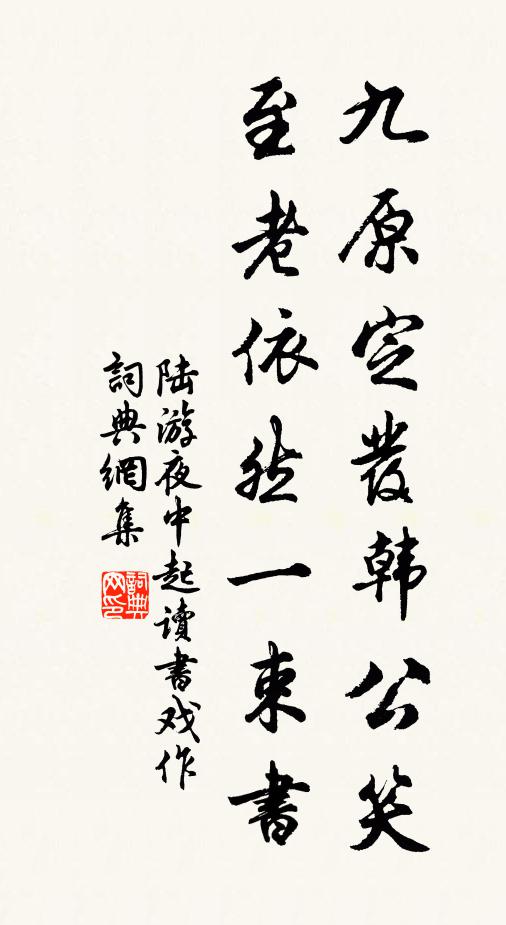 九原定發韩公笑
至老依然一束書
陆游夜中起讀書戏作
詞典網集
詞典网印